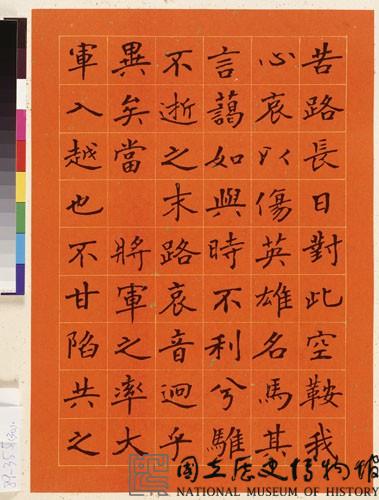 苦路長日對此空鞍我
心哀以傷英雄名馬其
言藹如與時不利兮騅
不逝之末路哀音迥乎
異矣當 將軍之率大
軍入越也不甘陷共之
國立歷史博物館
NATIONAL MUSEUM OF HISTORY